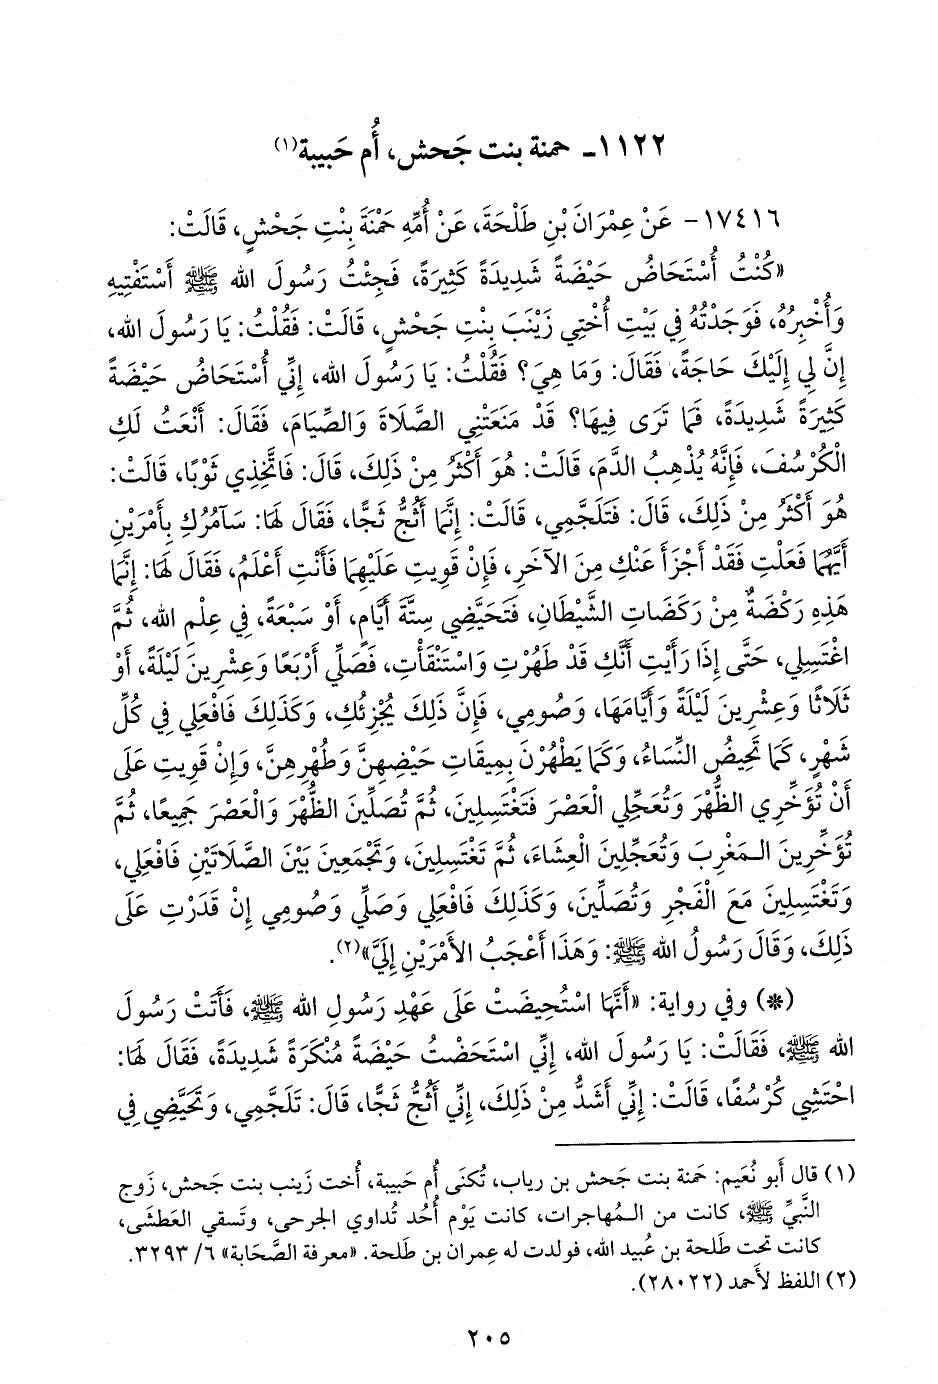 ١١٢٢ـ حمنة بنت جَحش، أُم حَبيبة(١)
١٧٤١٦- عَنْ عِمْرَانَ بْنِ طَلْحَةَ، عَنْ أُمِّهِ حَمْنَةَ بِنْتِ جَحْشٍ، قَالَتْ:
«كُنْتُ أُسْتَحَاضُ حَيْضَةً شَدِيدَةً كَثِيرَةً، فَجِئْتُ رَسُولَ الله ﷺ أَسْتَفْتِيهِ
وَأُخْبِرُهُ، فَوَجَدْتُهُ فِي بَيْتِ أُخْتِي زَيْنَبَ بِنْتِ جَحْشٍ، قَالَتْ: فَقُلْتُ: يَا رَسُولَ الله،
إِنَّ لِي إِلَيْكَ حَاجَةً، فَقَالَ: وَمَا هِيَ؟ فَقُلْتُ: يَا رَسُولَ الله، إِنِّي أُسْتَحَاضُ حَيْضَةً
كَثِيرَةً شَدِيدَةً، فَمَا تَرَى فِيهَا؟ قَدْ مَنَعَتْنِي الصَّلَاةَ وَالصِّيَامَ، فَقَالَ: أَنْعَتُ لَكِ
الْكُرْسُفَ، فَإِنَّهُ يُذْهِبُ الدَّمَ، قَالَتْ: هُوَ أَكْثَرُ مِنْ ذَلِكَ، قَالَ: فَاتَّخِذِي ثَوْبًا، قَالَتْ:
هُوَ أَكْثَرُ مِنْ ذَلِكَ، قَالَ: فَتَلَجَّمِي، قَالَتْ: إِنَّمَا أَثُجُّ ثَجًّا، فَقَالَ لَهَا: سَآمُرُكِ بِأَمْرَيْنِ
أَيَّهُمَا فَعَلْتِ فَقَدْ أَجْزَأَ عَنْكِ مِنَ الآخَرِ، فَإِنْ قَوِيتِ عَلَيْهِمَا فَأَنْتِ أَعْلَمُ، فَقَالَ لَهَا: إِنَّمَا
هَذِهِ رَكْضَةٌ مِنْ رَكَضَاتِ الشَّيْطَانِ، فَتَحَيَّضِي سِتَّةَ أَيَّامٍ، أَوْ سَبْعَةً، فِي عِلْمِ الله، ثُمَّ
اغْتَسِلِي، حَتَّى إِذَا رَأَيْتِ أَنَّكِ قَدْ طَهُرْتِ وَاسْتَنْقَأْتِ، فَصَلِّي أَرْبَعًا وَعِشْرِينَ لَيْلَةً، أَوْ
ثَلَاثًا وَعِشْرِينَ لَيْلَةً وَأَيَّامَهَا، وَصُومِي، فَإِنَّ ذَلِكَ يُجْزِئُكِ، وَكَذَلِكَ فَافْعَلِي فِي كُلِّ
شَهْرٍ، كَمَا تَحِيضُ النِّسَاءُ، وَكَمَا يَطْهُرْنَ بِمِيقَاتِ حَيْضِهِنَّ وَطُهْرِهِنَّ، وَإِنْ قَوِيتِ عَلَى
أَنْ تُؤَخِّرِي الظُّهْرَ وَتُعَجِّلِي الْعَصْرَ فَتَغْتَسِلِينَ، ثُمَّ تُصَلِّينَ الظُّهْرَ وَالْعَصْرَ جَمِيعًا، ثُمَّ
تُؤَخِّرِينَ الـمَغْرِبَ وَتُعَجِّلِينَ الْعِشَاءَ، ثُمَّ تَغْتَسِلِينَ، وَتَجْمَعِينَ بَيْنَ الصَّلَاتَيْنِ فَافْعَلِي،
وَتَغْتَسِلِينَ مَعَ الْفَجْرِ وَتُصَلِّينَ، وَكَذَلِكَ فَافْعَلِي وَصَلِّي وَصُومِي إِنْ قَدَرْتِ عَلَى
ذَلِكَ، وَقَالَ رَسُولُ الله ﷺ: وَهَذَا أَعْجَبُ الأَمْرَيْنِ إِلَيَّ»(٢).
(*) وفي رواية: «أَنَّهَا اسْتُحِيضَتْ عَلَى عَهْدِ رَسُولِ الله ﷺ، فَأَتَتْ رَسُولَ
الله ﷺ، فَقَالَتْ: يَا رَسُولَ الله، إِنِّي اسْتَحَضْتُ حَيْضَةً مُنْكَرَةً شَدِيدَةً، فَقَالَ لَهَا:
احْتَشِي كُرْسُفًا، قَالَتْ: إِنِّي أَشَدُّ مِنْ ذَلِكَ، إِنِّي أَثُجُّ ثَجًّا، قَالَ: تَلَجَّمِي، وَتَحَيَّضِي فِي
(١) قال أَبو نُعَيم: حَمنة بنت جَحش بن رياب، تُكنَى أُم حَبيبة، أُخت زَينب بنت جَحش، زَوج
النَّبيِّ ﷺ، كانت من الـمُهاجرات، كانت يَوْم أُحُد تُداوي الجرحى، وتَسقي العَطشَى،
كانت تحت طَلحة بن عُبيد الله، فولدت له عِمران بن طَلحة. «معرفة الصَّحابة» ٦/ ٣٢٩٣.
(٢) اللفظ لأَحمد (٢٨٠٢٢).
٢٠٥